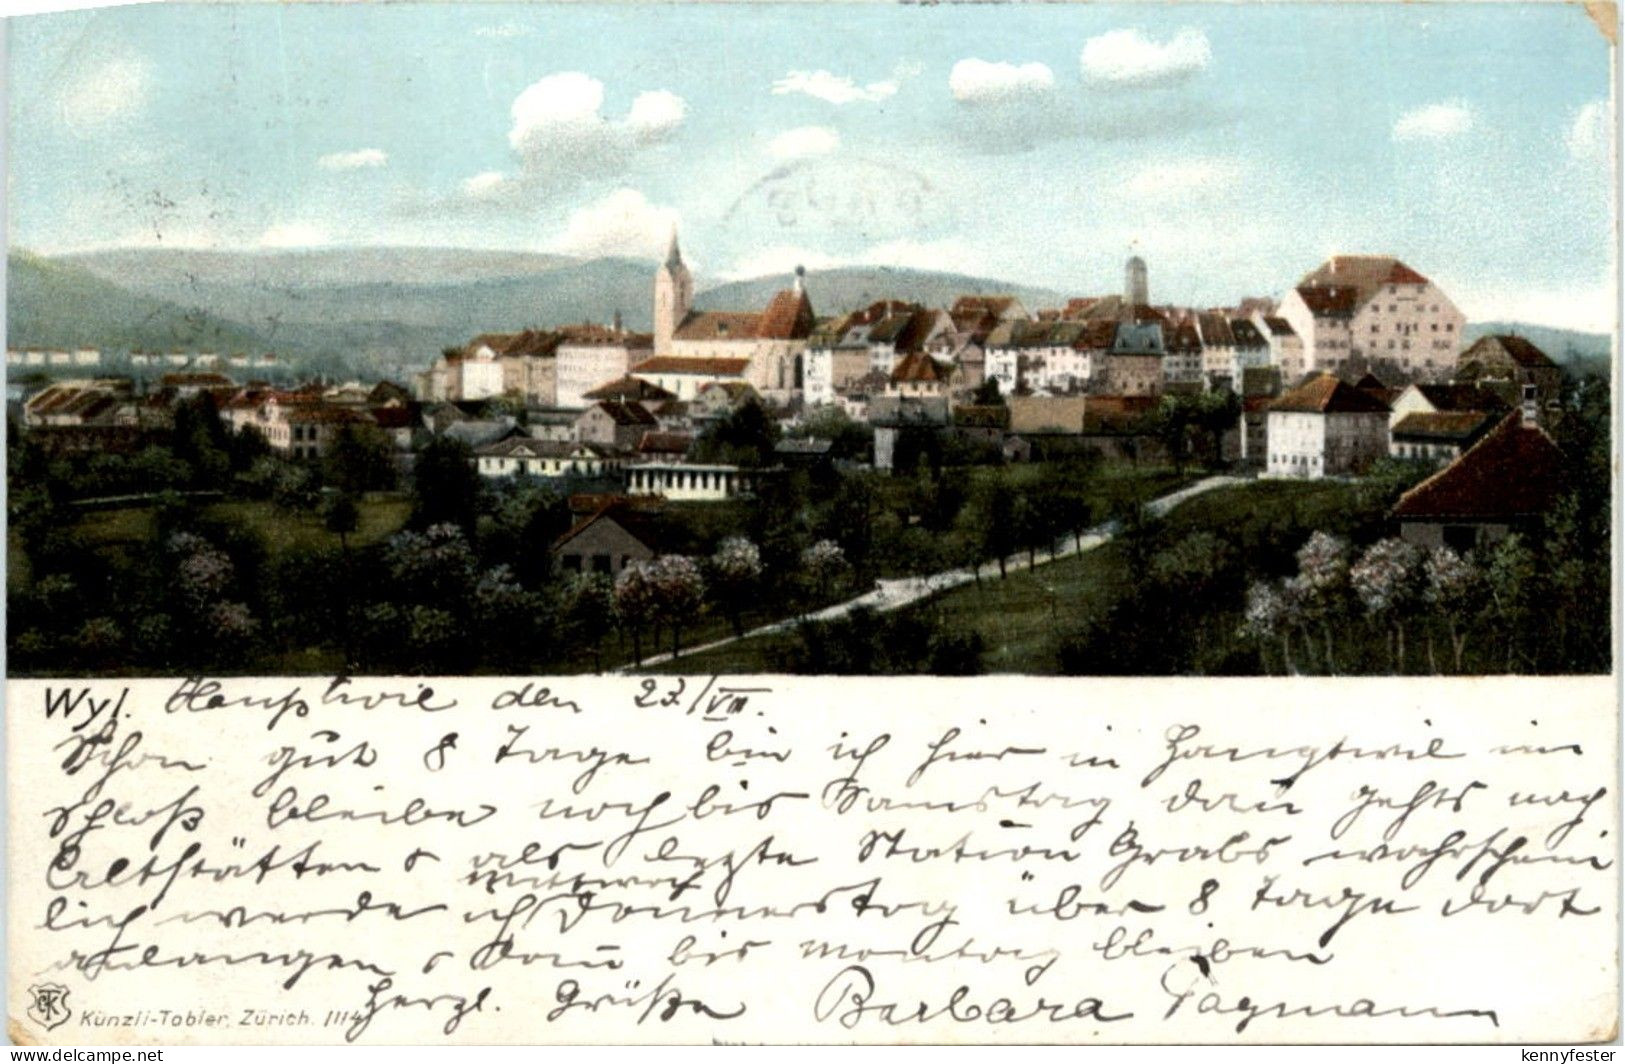 Wyl. den 23./VIII.
Schon gut 8 Tage bin ich hier in Hauptwil im
Schloß bleibe noch bis Samstag dañ gehts nach
Altstätten & als letzte Station Grabs wahrschein
Mittwoch
lich werde ich Donnerstag über 8 Tage dort
anlangen & dañ bis Montag bleiben
Herzl. Grüße Barbara
Künzli-Tobler, Zürich. 1114
kennyfester